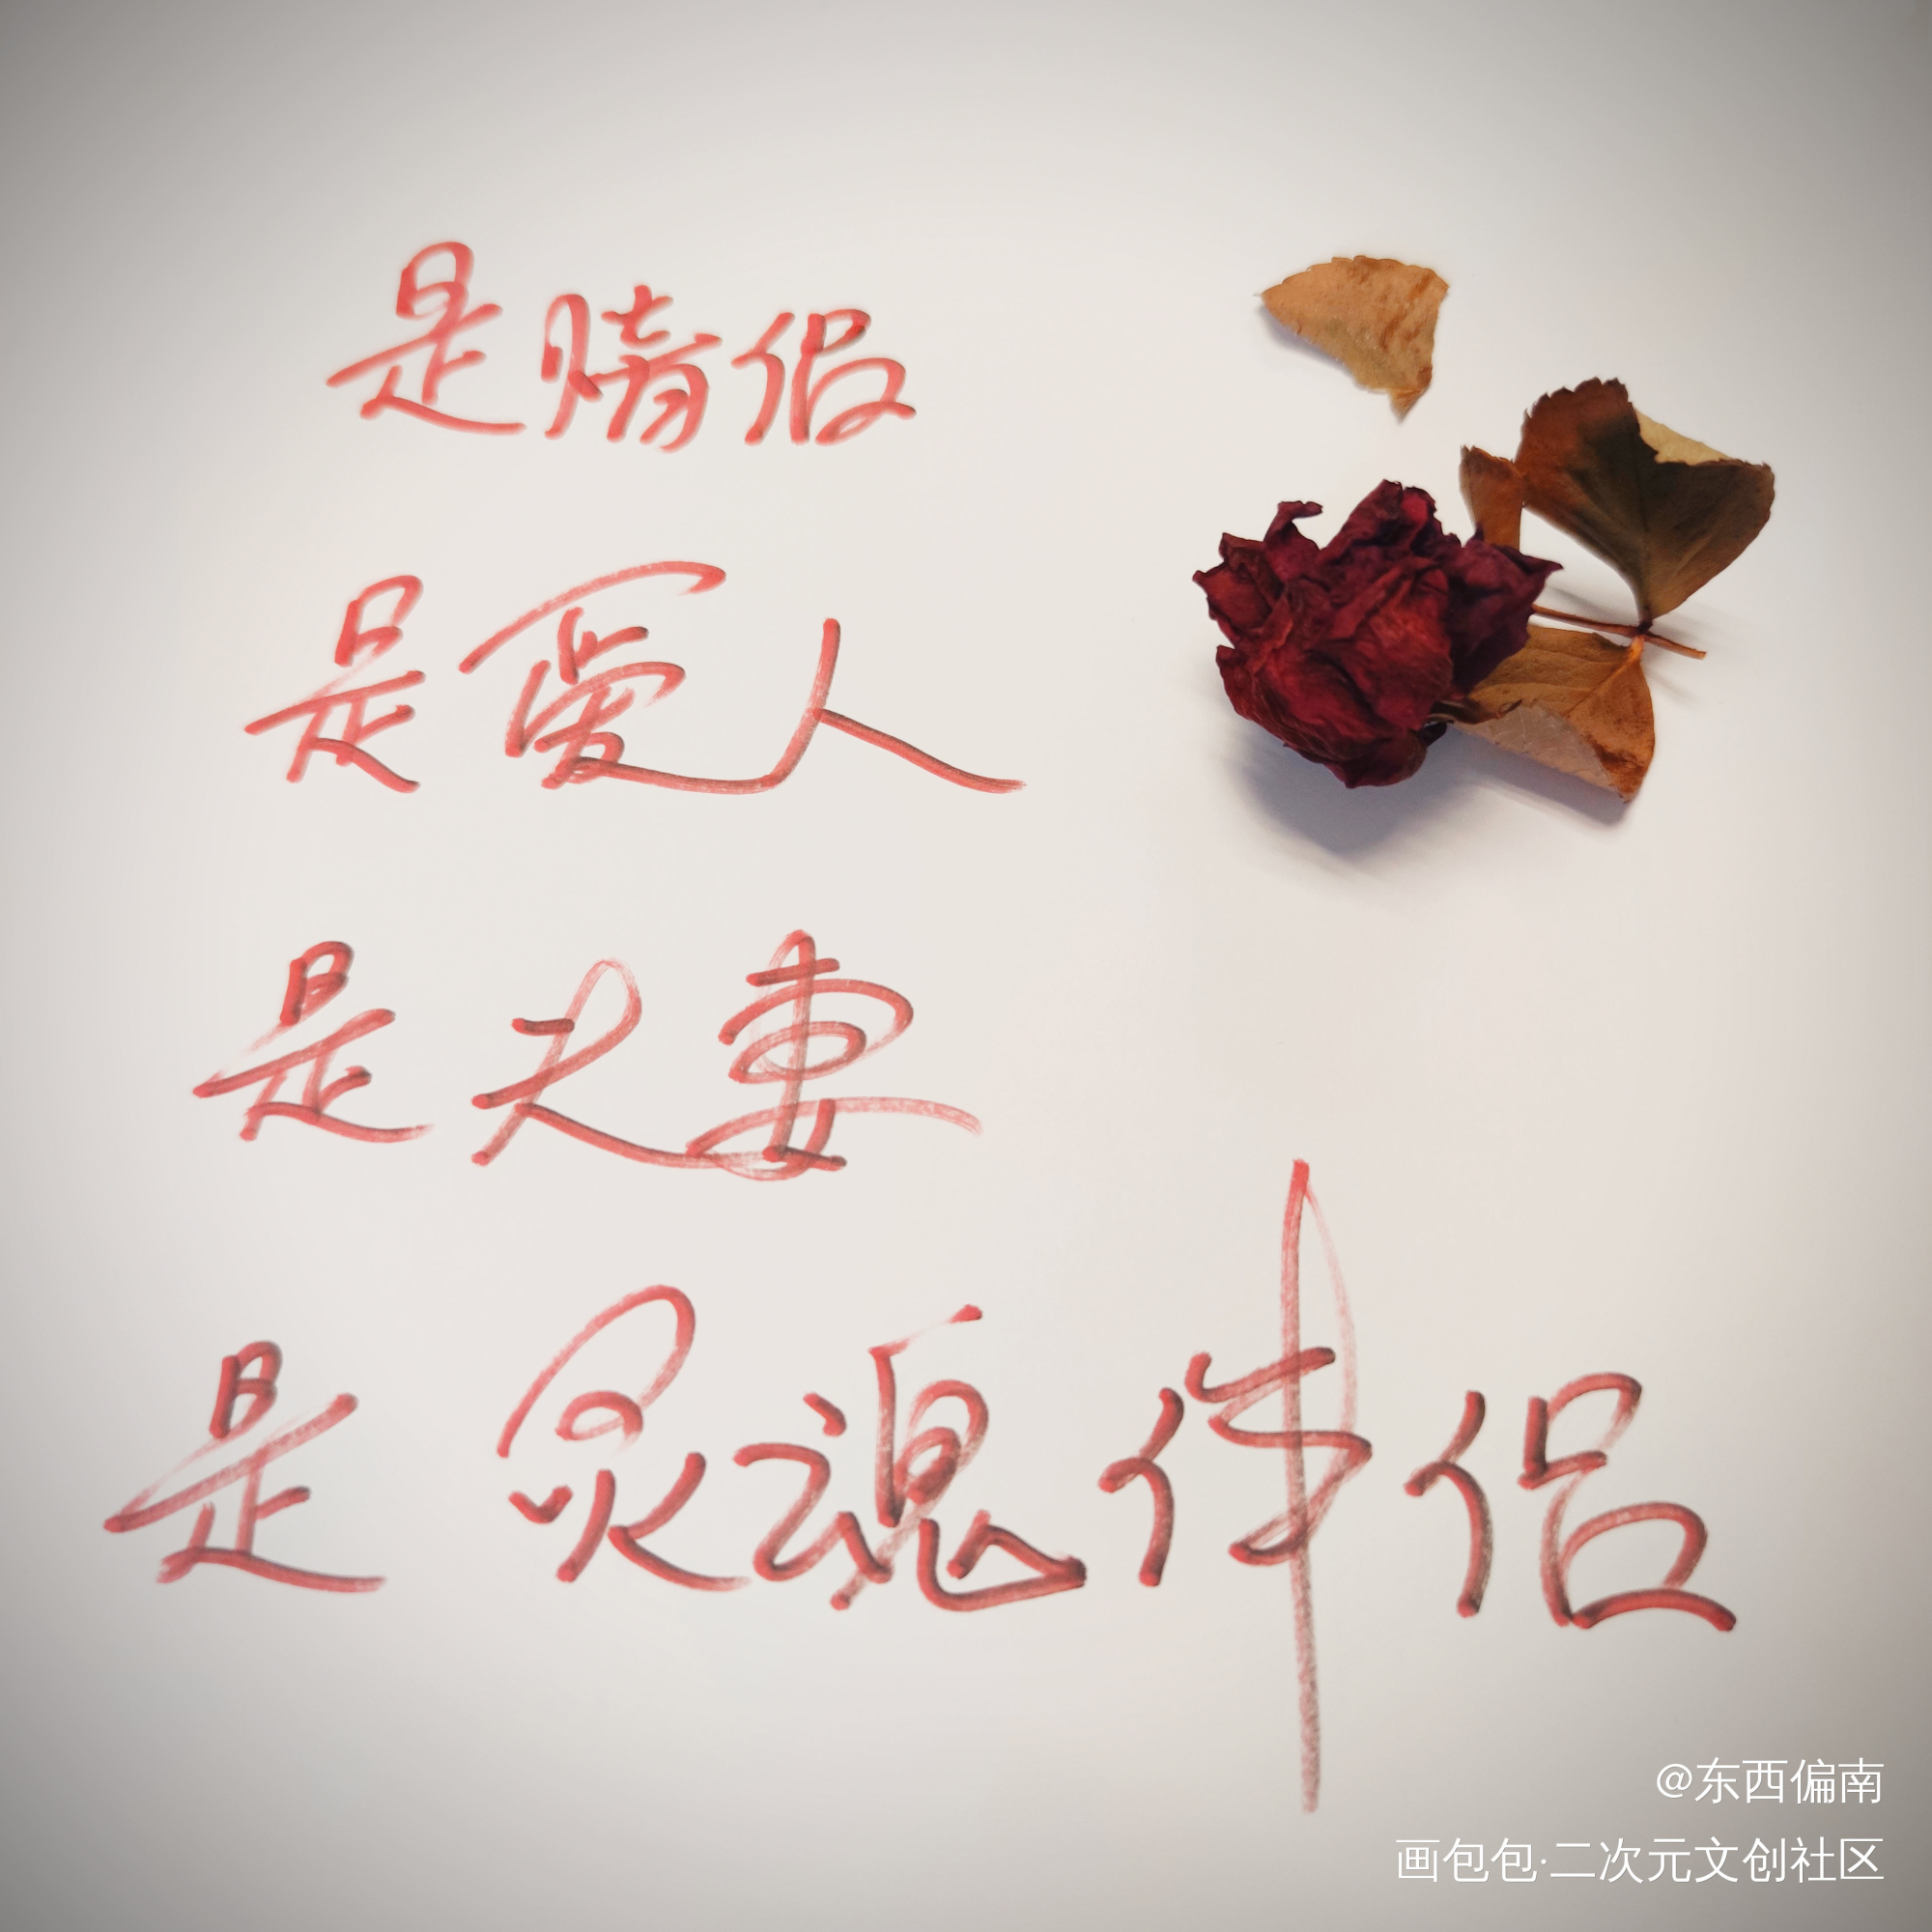 是情假
是爱人
是夫妻
是灵魂伴侣
@东西偏南
画包包·二次元文创社区